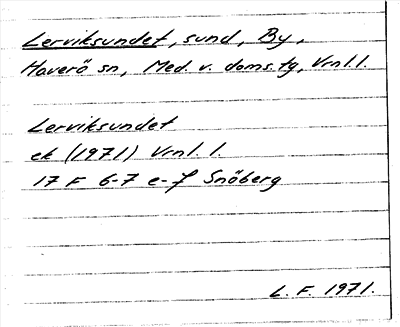 Lerviksundet, sund, By,
Haverö sn, Med. v. doms.tg, Vrnl.l.
Lerviksundet
ek (1971) Vrnl. l.
17 F 6-7 e-f Snöberg
L. F. 1971.